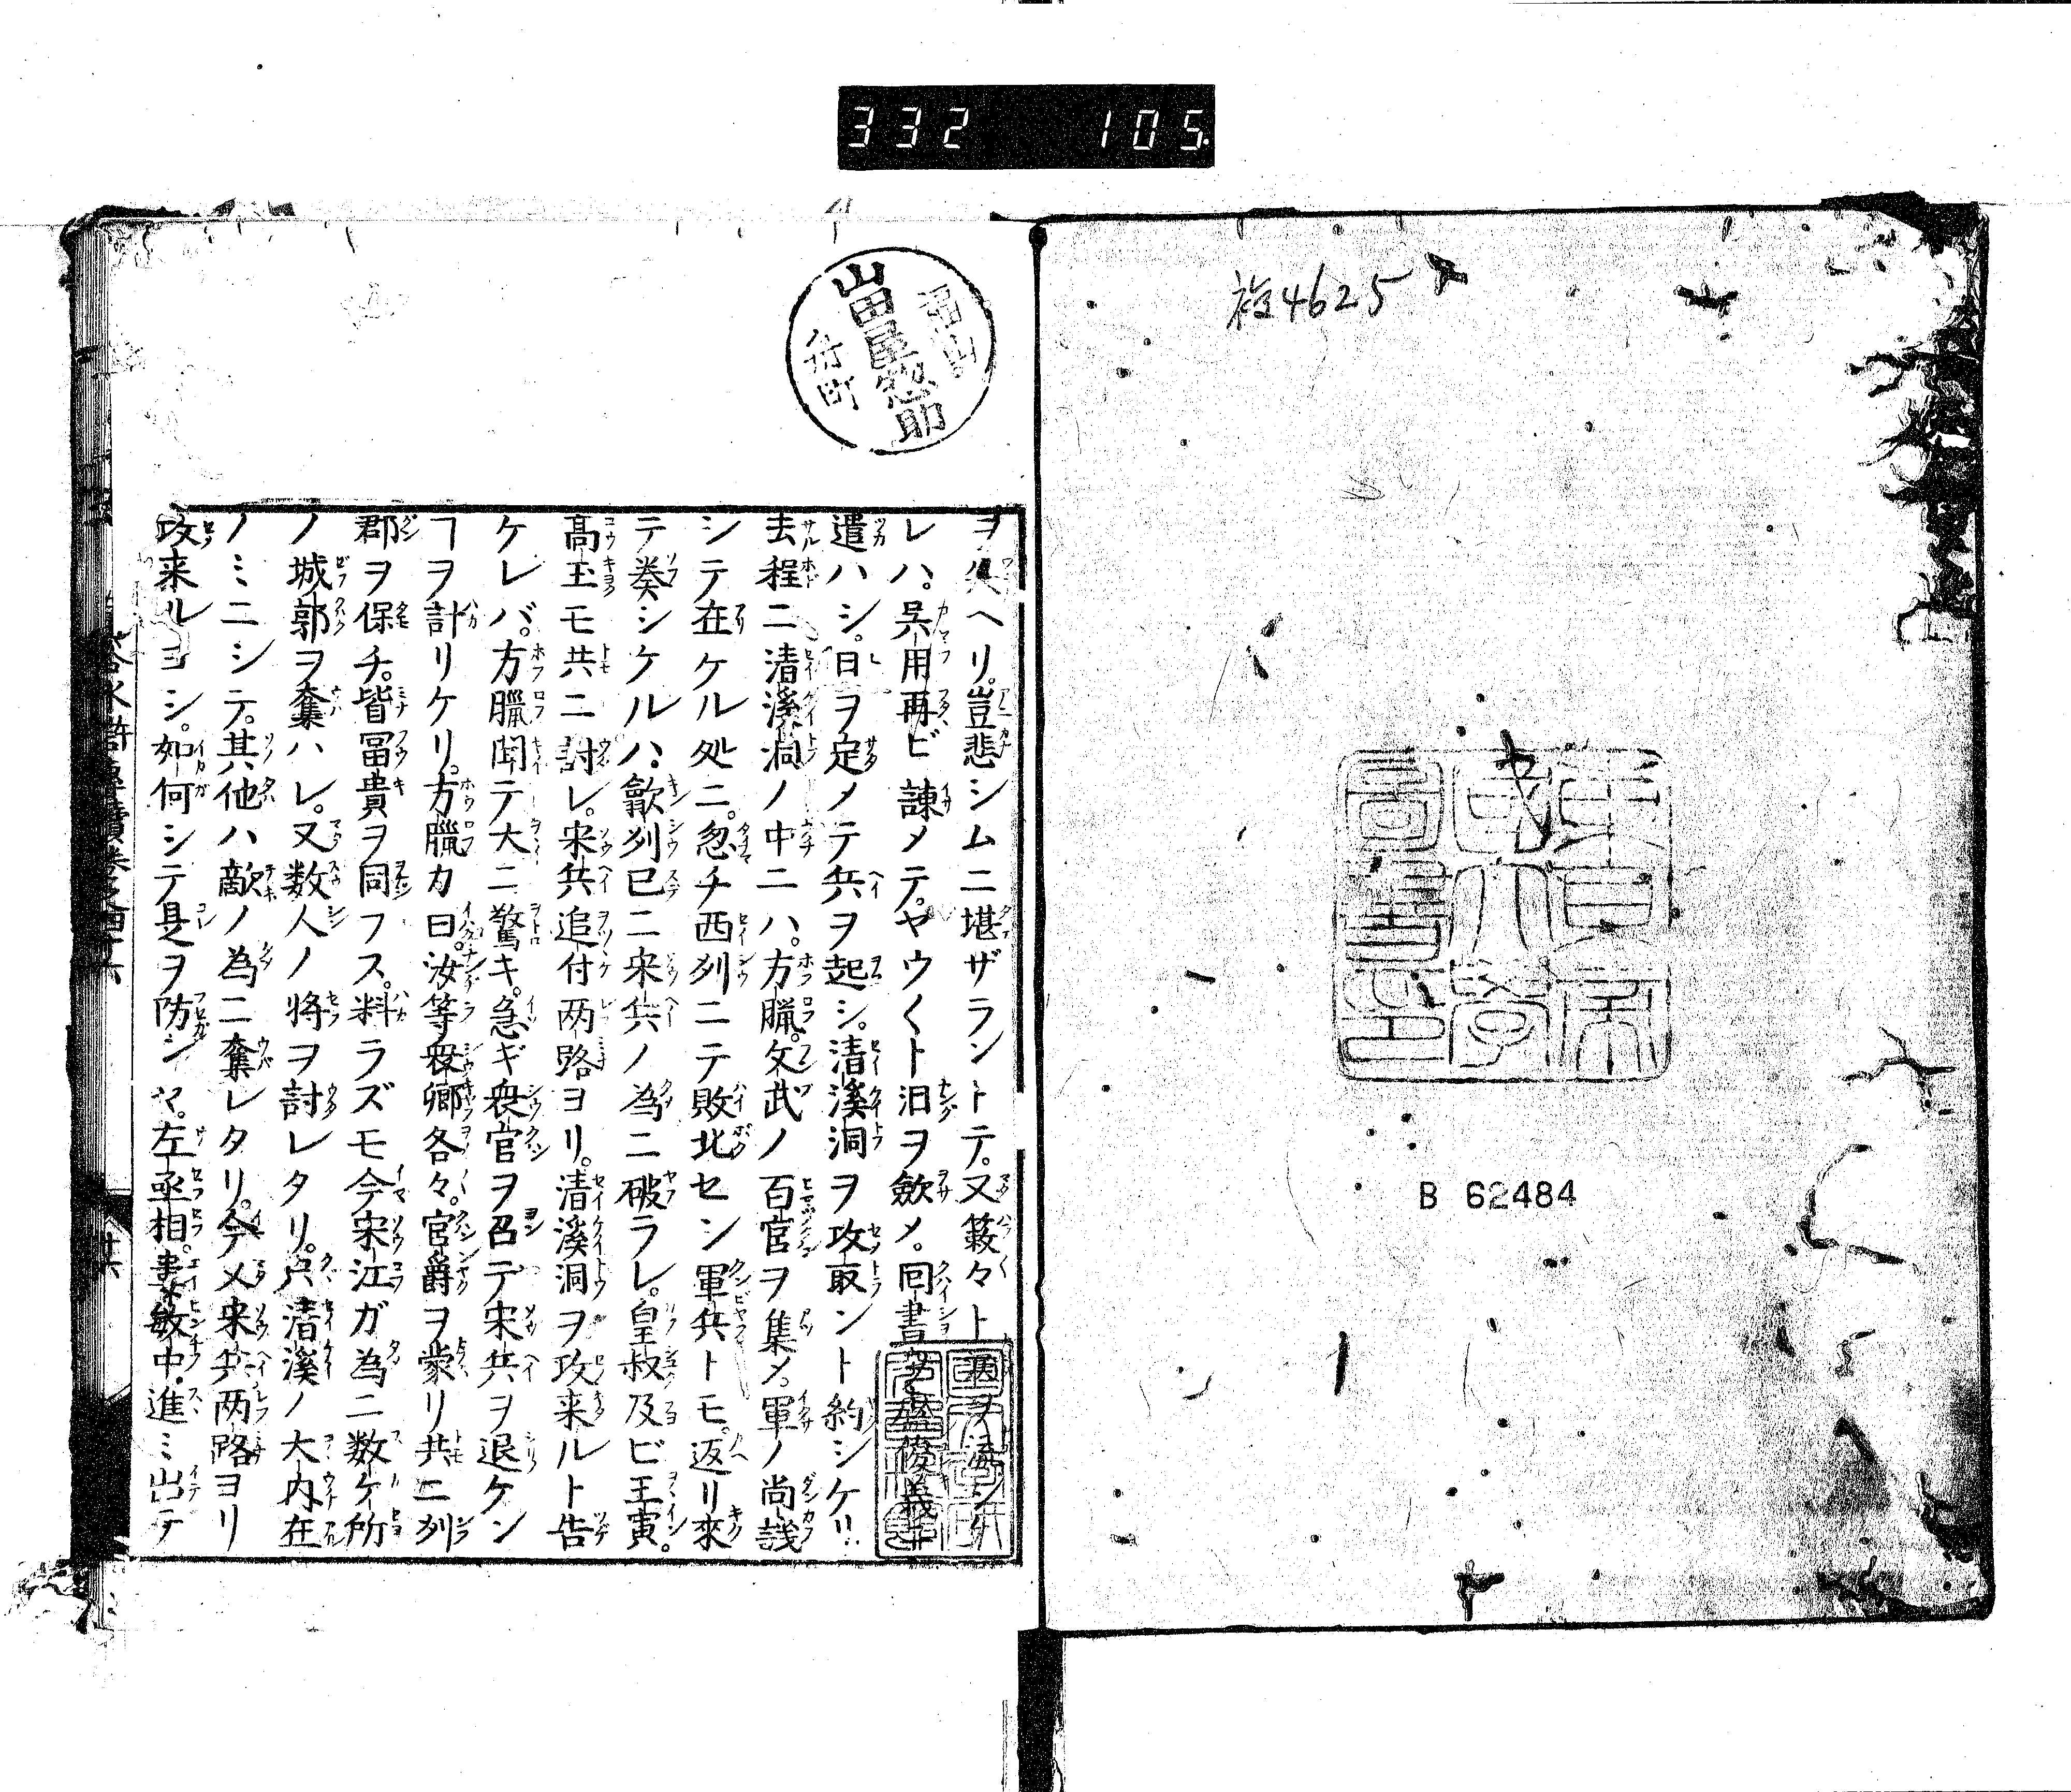 332 105
4625
B 62484
山田屋惣助
舟町
ヲ失ヘリ。豈悲シムニ堪ザラントテ。又簌々ト涙ヲ流シケ
レハ。呉用再ビ諌メテ。ヤウ〱ト泪ヲ歛メ。回書ヲ盧俊義ニ
遣ハシ。日ヲ定メテ兵ヲ起シ。清溪洞ヲ攻取ント約シケリ
去程ニ清溪洞ノ中ニハ。方臘。文武ノ百官ヲ集メ。軍ノ尚議
シテ在ケル処ニ。忽チ西列ニテ敗北セシ軍兵トモ。返リ來
テ奏シケルハ、歙列已ニ宋兵ノ為ニ破ラレ。皇叔及ビ王寅。
高玉モ共ニ討レ。宋兵追付両路ヨリ。清溪洞ヲ攻来ルト告
ケレバ。方臘聞テ大ニ驚キ。急ギ衆官ヲ召テ宋兵ヲ退ケン
ヿヲ計リケリ。方臘カ曰。汝等衆卿各々。官爵ヲ蒙リ共ニ列
郡ヲ保チ。皆冨貴ヲ同フス。料ラズモ今宋江ガ為ニ数ケ所
ノ城郭ヲ奪ハレ。又数人ノ将ヲ討レタリ。只清溪ノ大内在
ノミニシテ。其他ハ敵ノ為ニ奪レタリ。今又宋兵両路ヨリ
攻来ルヨシ。如何シテ是ヲ防シヤ。左丞相。婁敏中。進ミ出テ